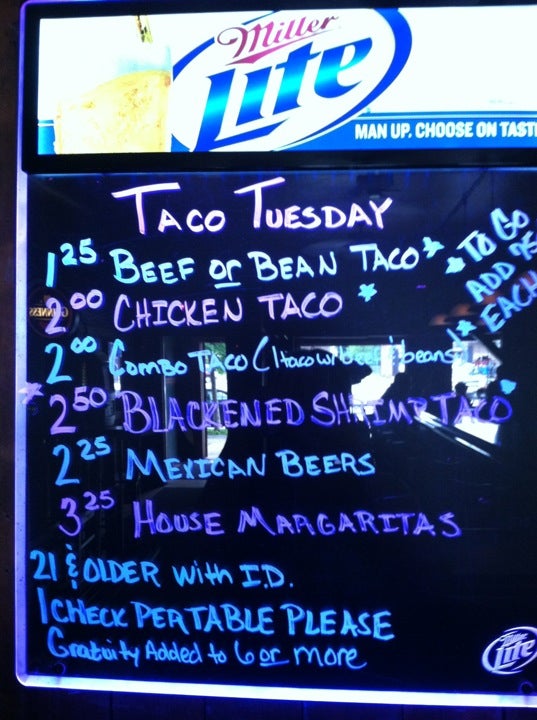 Miller
Lite
MAN UP. CHOOSE ON TAST
TACO TUESDAY
1.25 BEEF or BEAN TACO*
2.00 CHICKEN TACO *
2.00 Combo TACO (1 taco w/ beef & beans
* 2.50 BLACKENED SHRIMP TACO
2.25 MEXICAN BEERS
3.25 HOUSE MARGARITAS
* TO GO
ADD 75
EACH
21 & OLDER with I.D.
1 CHECK PER TABLE PLEASE
Gratuity Added to 6 or more
Miller
Lite
GUINNESS